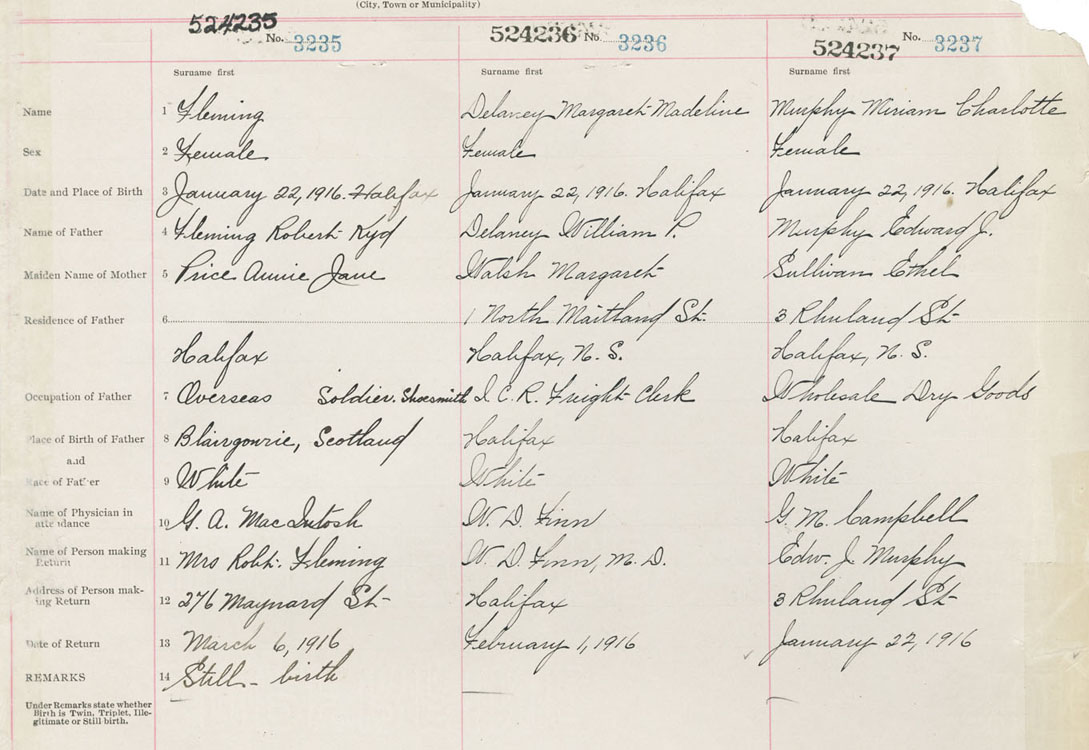 (City, Town or Municipality)
524235 No. 3235 524236 No. 3236 524237 No. 3237
Surname first Surname first Surname first
Name 1 Fleming Delaney Margaret Madeline Murphy Miriam Charlotte
Sex 2 Female Female Female
Date and Place of Birth 3 January 22, 1916. Halifax January 22, 1916. Halifax January 22, 1916. Halifax
Name of Father 4 Fleming Robert Kyd Delaney William P. Murphy Edward J.
Maiden Name of Mother 5 Price Annie Jane Walsh Margaret Sullivan Ethel
Residence of Father 6 1 North Maitland St. 3 Rhuland St
Halifax Halifax, N. S. Halifax, N. S.
Occupation of Father 7 Overseas Soldier. Shoesmith I. C. R. Freight Clerk Wholesale Dry Goods
Place of Birth of Father 8 Blairgowrie, Scotland Halifax Halifax
and
Race of Father 9 White White White
Name of Physician in attendance 10 G. A. MacIntosh W. D. Finn G. M. Campbell
Name of Person making Return 11 Mrs Robt. Fleming W. D. Finn, M. D. Edw. J. Murphy
Address of Person making Return 12 276 Maynard St Halifax 3 Rhuland St
Date of Return 13 March 6, 1916 February 1, 1916 January 27, 1916
REMARKS 14 Still-birth
Under Remarks state whether
Birth is Twin, Triplet, Ille-
gitimate or Still birth.